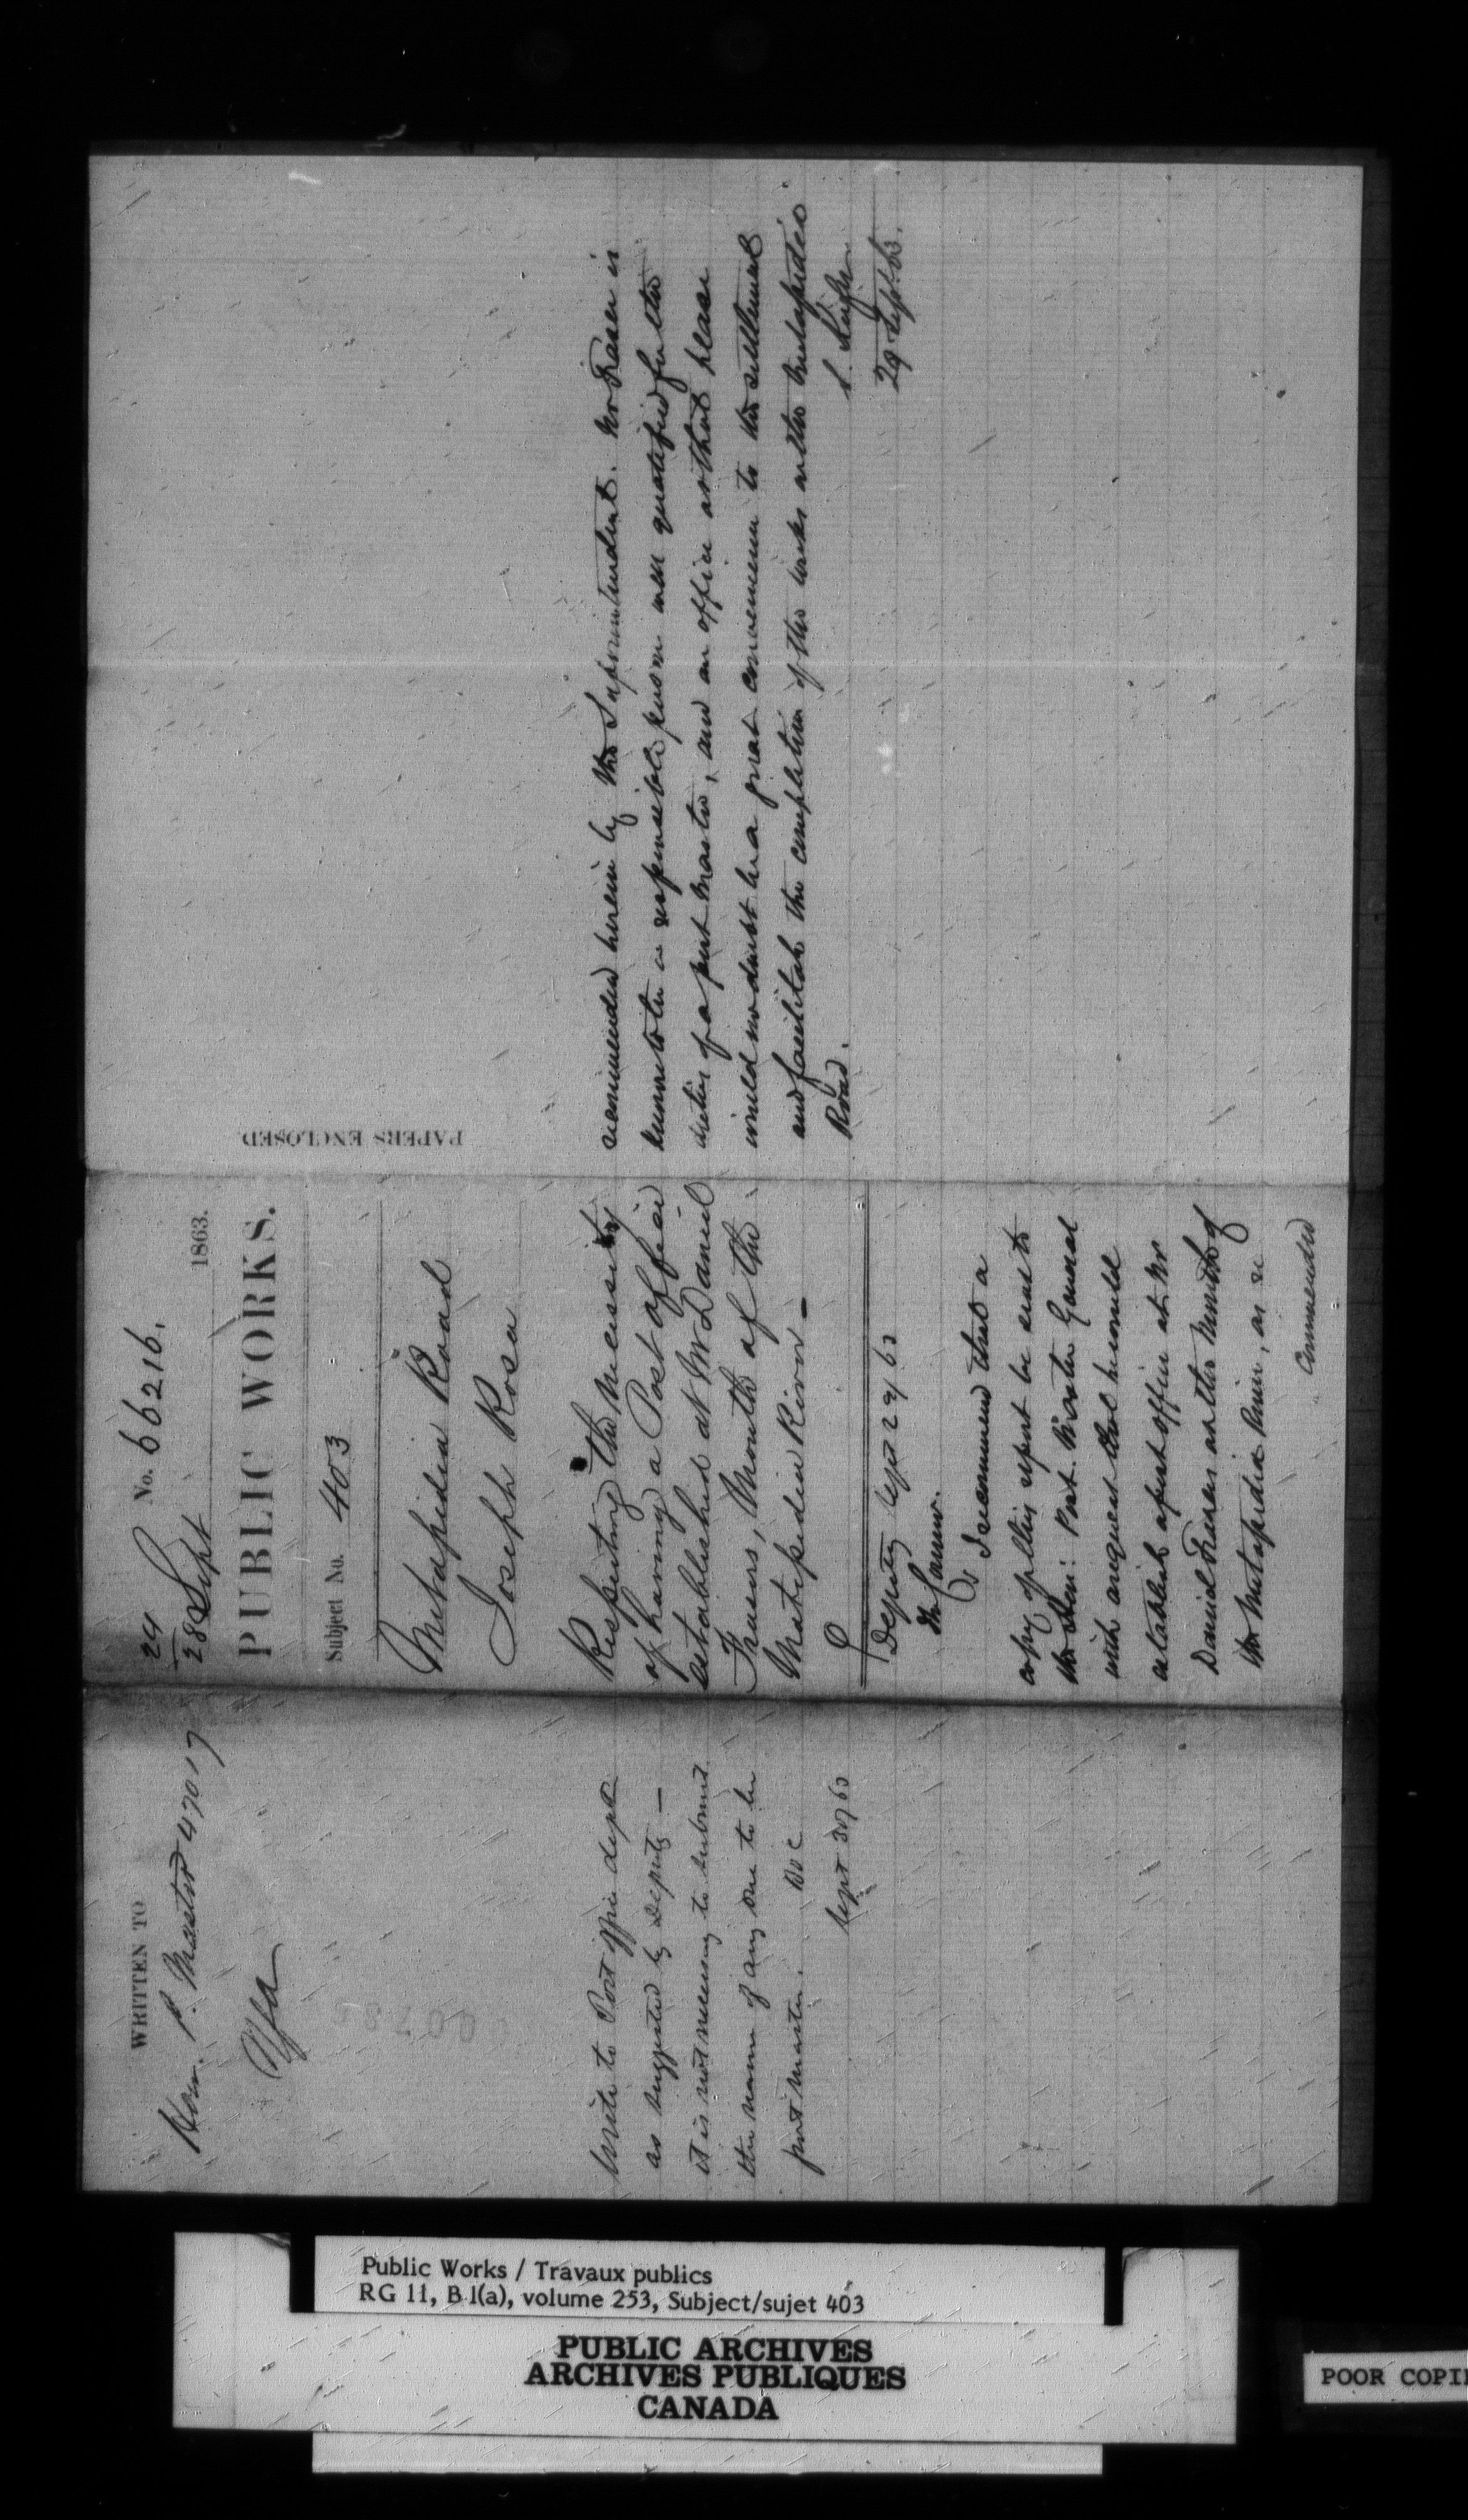 WRITTEN TO
Hon. P. Master 47017
Write to Post Office dept
as suggested by Deputy —
it is not necessary to submit
the name of any one to be
post master.
Sept 30/63
24
28 Sept
No. 66216.
1863.
PUBLIC WORKS.
Subject No. 403
Matapedia Road
Joseph Rosa
Respecting the necessity
of having a Post Office
established at Mr Daniel
Frasers, Mouth of the
Matapedia River —
Deputy Sept 29/63
I recommend that a
copy of this report be sent to
the Hon: Post Master General
with a request that he would
establish a post office at Mr
Daniel Frasers at the Mouth of
the Metapedia River, as re
commended
PAPERS ENCLOSED
recommended herein by the Superintendent. Mr Fraser is
known to be a responsible person well qualified for the
duties of a post master, and an office at that place
would no doubt be a great convenience to the settlement
and facilitate the completion of the works on the Metapedia
Road.
29 Sept. 63.
Public Works / Travaux publics
RG 11, B 1(a), volume 253, Subject/sujet 403
PUBLIC ARCHIVES
ARCHIVES PUBLIQUES
CANADA
POOR COPI